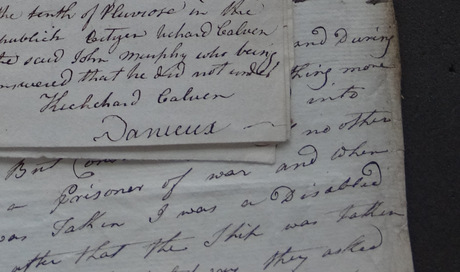 the tenth of Pluviose in the
Republish Cityen Richard Calven
the said John Murphy who being
answered that he did not under
Richchard Calven
Danieux
and During
thing more
into
no other
But
a Prisoner of war and when
was Taken I was a Disabled
after that the Ship was taken
they asked